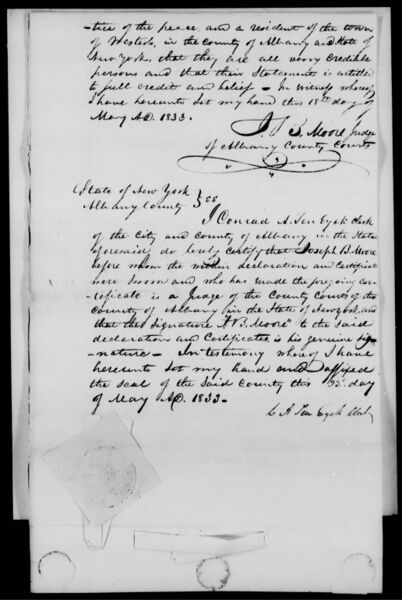 -tice of the peace and a resident of the town
of Westerlo, in the county of Albany and State of
New York, that they are all very credible
persons and that their Statement is entitled
to full credit and belief - In witness whereof
I have hereunto set my hand this 18th day of
May AD. 1833.
J B Moore Judge
of Albany County Courts
State of New York
Albany County } SS
I Conrad A. Ten Eyck clerk
of the City and county of Albany in the State
aforesaid do hereby certify that Joseph B. Moore
before whom the within declaration and Certificate
were sworn and who has made the foregoing cer-
tificate is a Judge of the County Courts of the
county of Albany in the State of New York, and
that the Signature "J B Moore" to the said
declaration and Certificates is his genuine Sig-
-nature - In testimony whereof I have
hereunto set my hand and affixed
the seal of the said County this day
of May AD. 1833 -
C A Ten Eyck Clerk